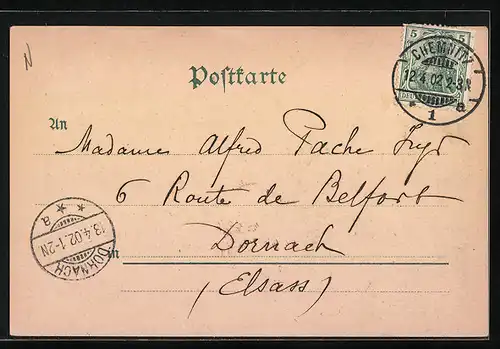 N
5 5
CHEMNITZ
12.4.02.2-3N.
* 1 a
Postkarte
An
Madames Alfred Pache
6 Route de Belfort
in Dornach
(Elsass)
DORNACH
13.4.02.1-2N
* * a